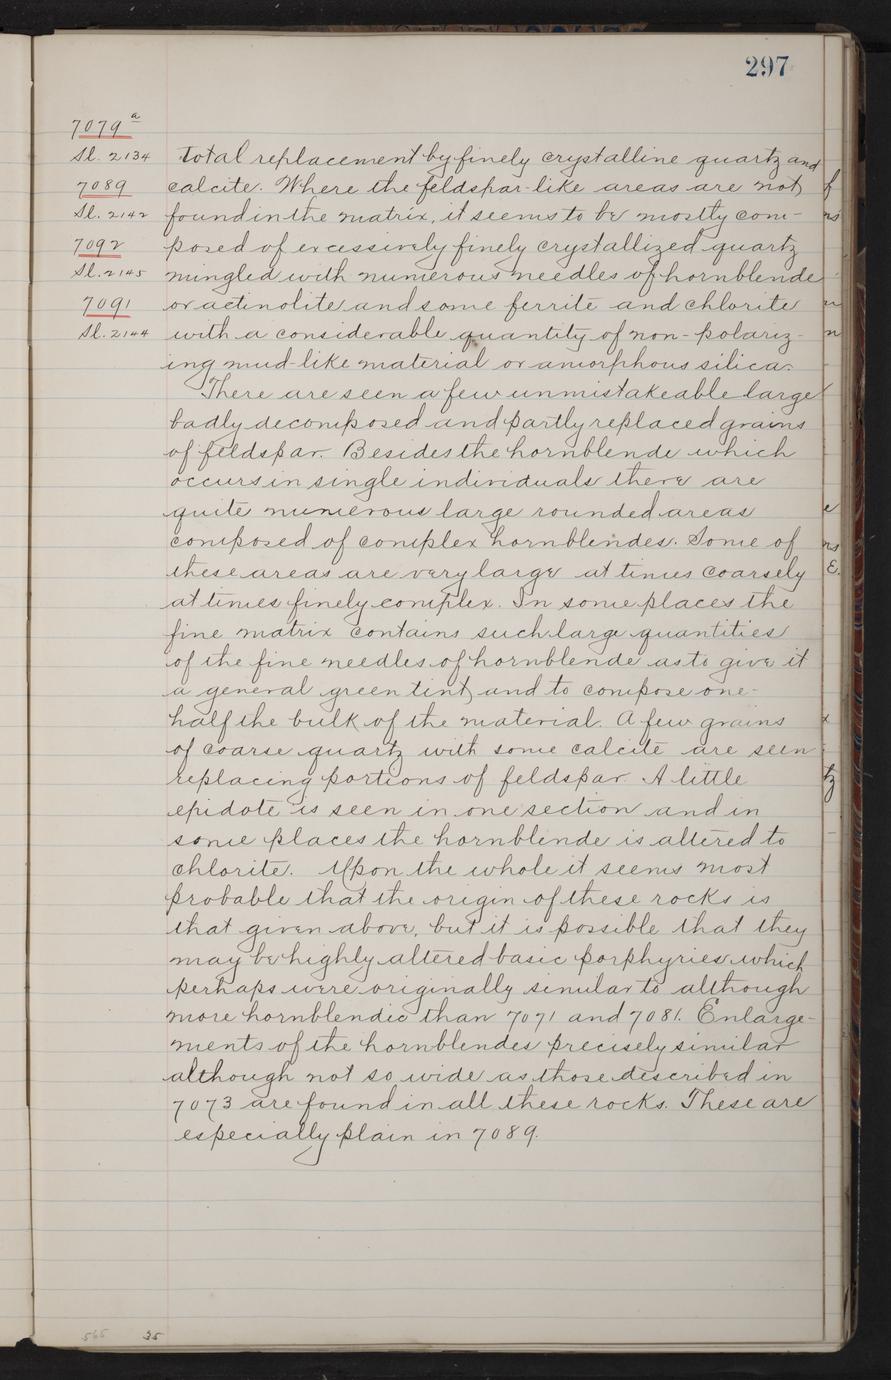 297
7079a
Sl. 2134 Total replacement by finely crystalline quartz and
7089 calcite. Where the feldspar-like areas are not
Sl. 2142 found in the matrix, it seems to be mostly com-
7092 posed of excessively finely crystallized quartz
Sl. 2145 mingled with numerous needles of hornblende
7091 or actinolite and some ferrite and chlorite
Sl. 2144 with a considerable quantity of non-polariz-
ing mud-like material or amorphous silica.
There are seen a few unmistakeable large
badly decomposed and partly replaced grains
of feldspar. Besides the hornblende which
occurs in single individuals there are
quite numerous large rounded areas
composed of complex hornblendes. Some of
these areas are very large at times coarsely
at times finely complex. In some places the
fine matrix contains such large quantities
of the fine needles of hornblende as to give it
a general green tint, and to compose one-
half the bulk of the material. A few grains
of coarse quartz with some calcite are seen
replacing portions of feldspar. A little
epidote is seen in one section and in
some places the hornblende is altered to
chlorite. Upon the whole it seems most
probable that the origin of these rocks is
that given above, but it is possible that they
may be highly altered basic porphyries which
perhaps were originally similar to although
more hornblendic than 7071 and 7081. Enlarge-
ments of the hornblendes precisely similar
although not so wide as those described in
7073 are found in all these rocks. These are
especially plain in 7089.
565 35